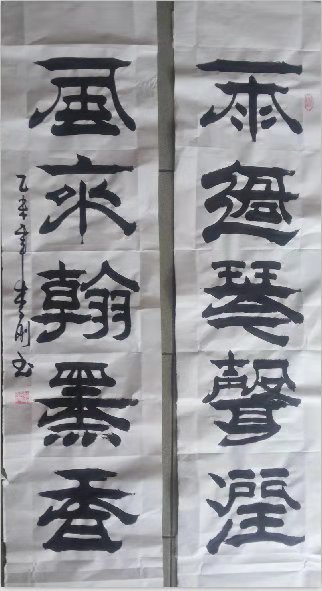 雨過琴聲潤
風來翰墨香
乙未年刚书